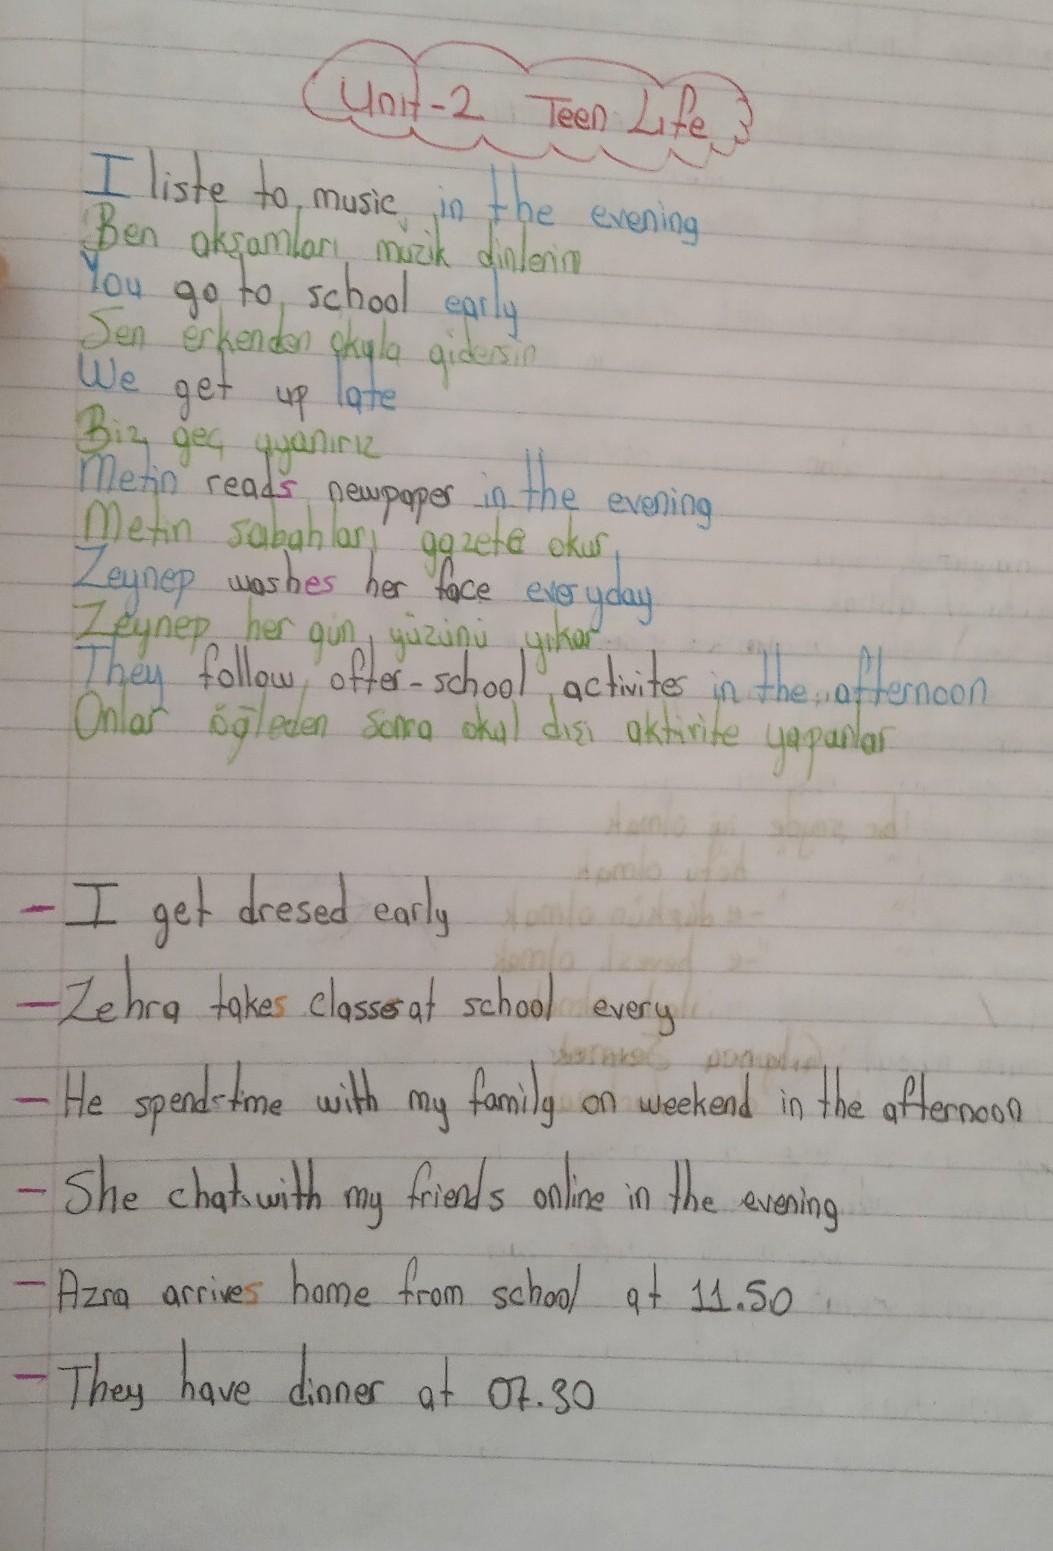 Unit-2 Teen Life
I liste to music in the evening
Ben akşamları müzik dinlerim
You go to school early
Sen erkenden okula gidersin
We get up late
Biz geç uyanırız
Metin reads newpaper in the evening
Metin sabahları gazete okur
Zeynep washes her face everyday
Zeynep her gün yüzünü yıkar
They follow after-school activites in the afternoon
Onlar öğleden sonra okul dışı aktivite yaparlar
- I get dresed early
- Zehra takes classes at school every
- He spends time with my family on weekend in the afternoon
- She chats with my friends online in the evening
- Azra arrives home from school at 11.50
- They have dinner at 07.30